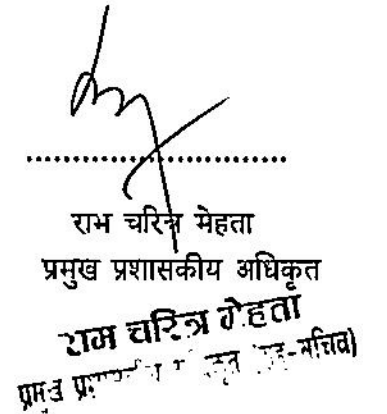 राभ चरित्र मेहता
प्रमुख प्रशासकीय अधिकृत
राम चरित्र मेहता
प्रमुख